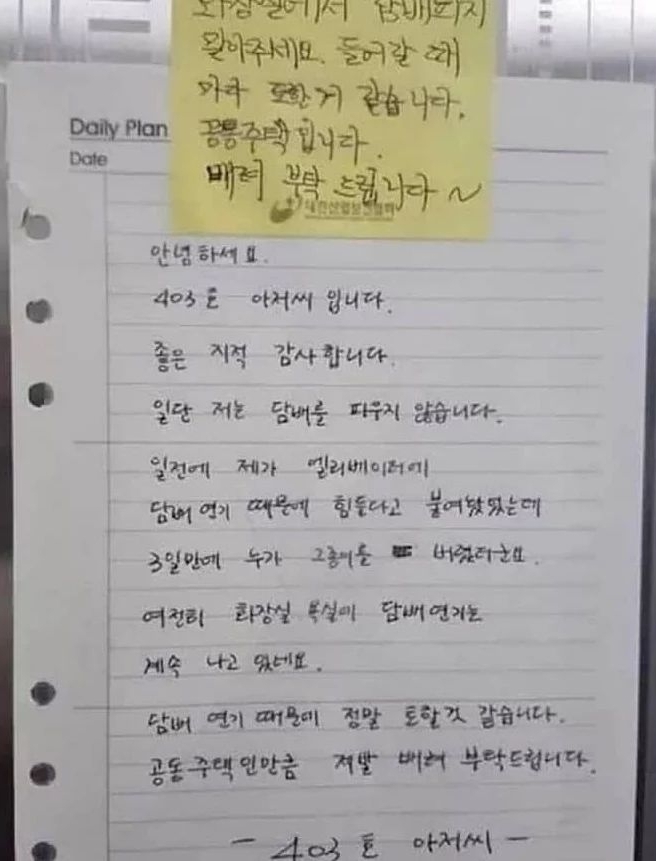 화장실에서 담배피지
말아주세요. 들어갈 때
마다 토할거 같습니다.
공동주택입니다.
배려 부탁 드립니다~
대한산업보건협회
Daily Plan
Date
안녕하세요.
403호 아저씨 입니다.
좋은 지적 감사합니다.
일단 저는 담배를 피우지 않습니다.
일전에 제가 엘리베이터에
담배 연기 때문에 힘들다고 붙여놨었는데
3일만에 누가 그종이를 버렸더군요.
여전히 화장실 욕실에 담배연기는
계속 나고 있네요.
담배 연기 때문에 정말 토할것 같습니다.
공동주택인만큼 제발 배려 부탁드립니다.
- 403호 아저씨 -